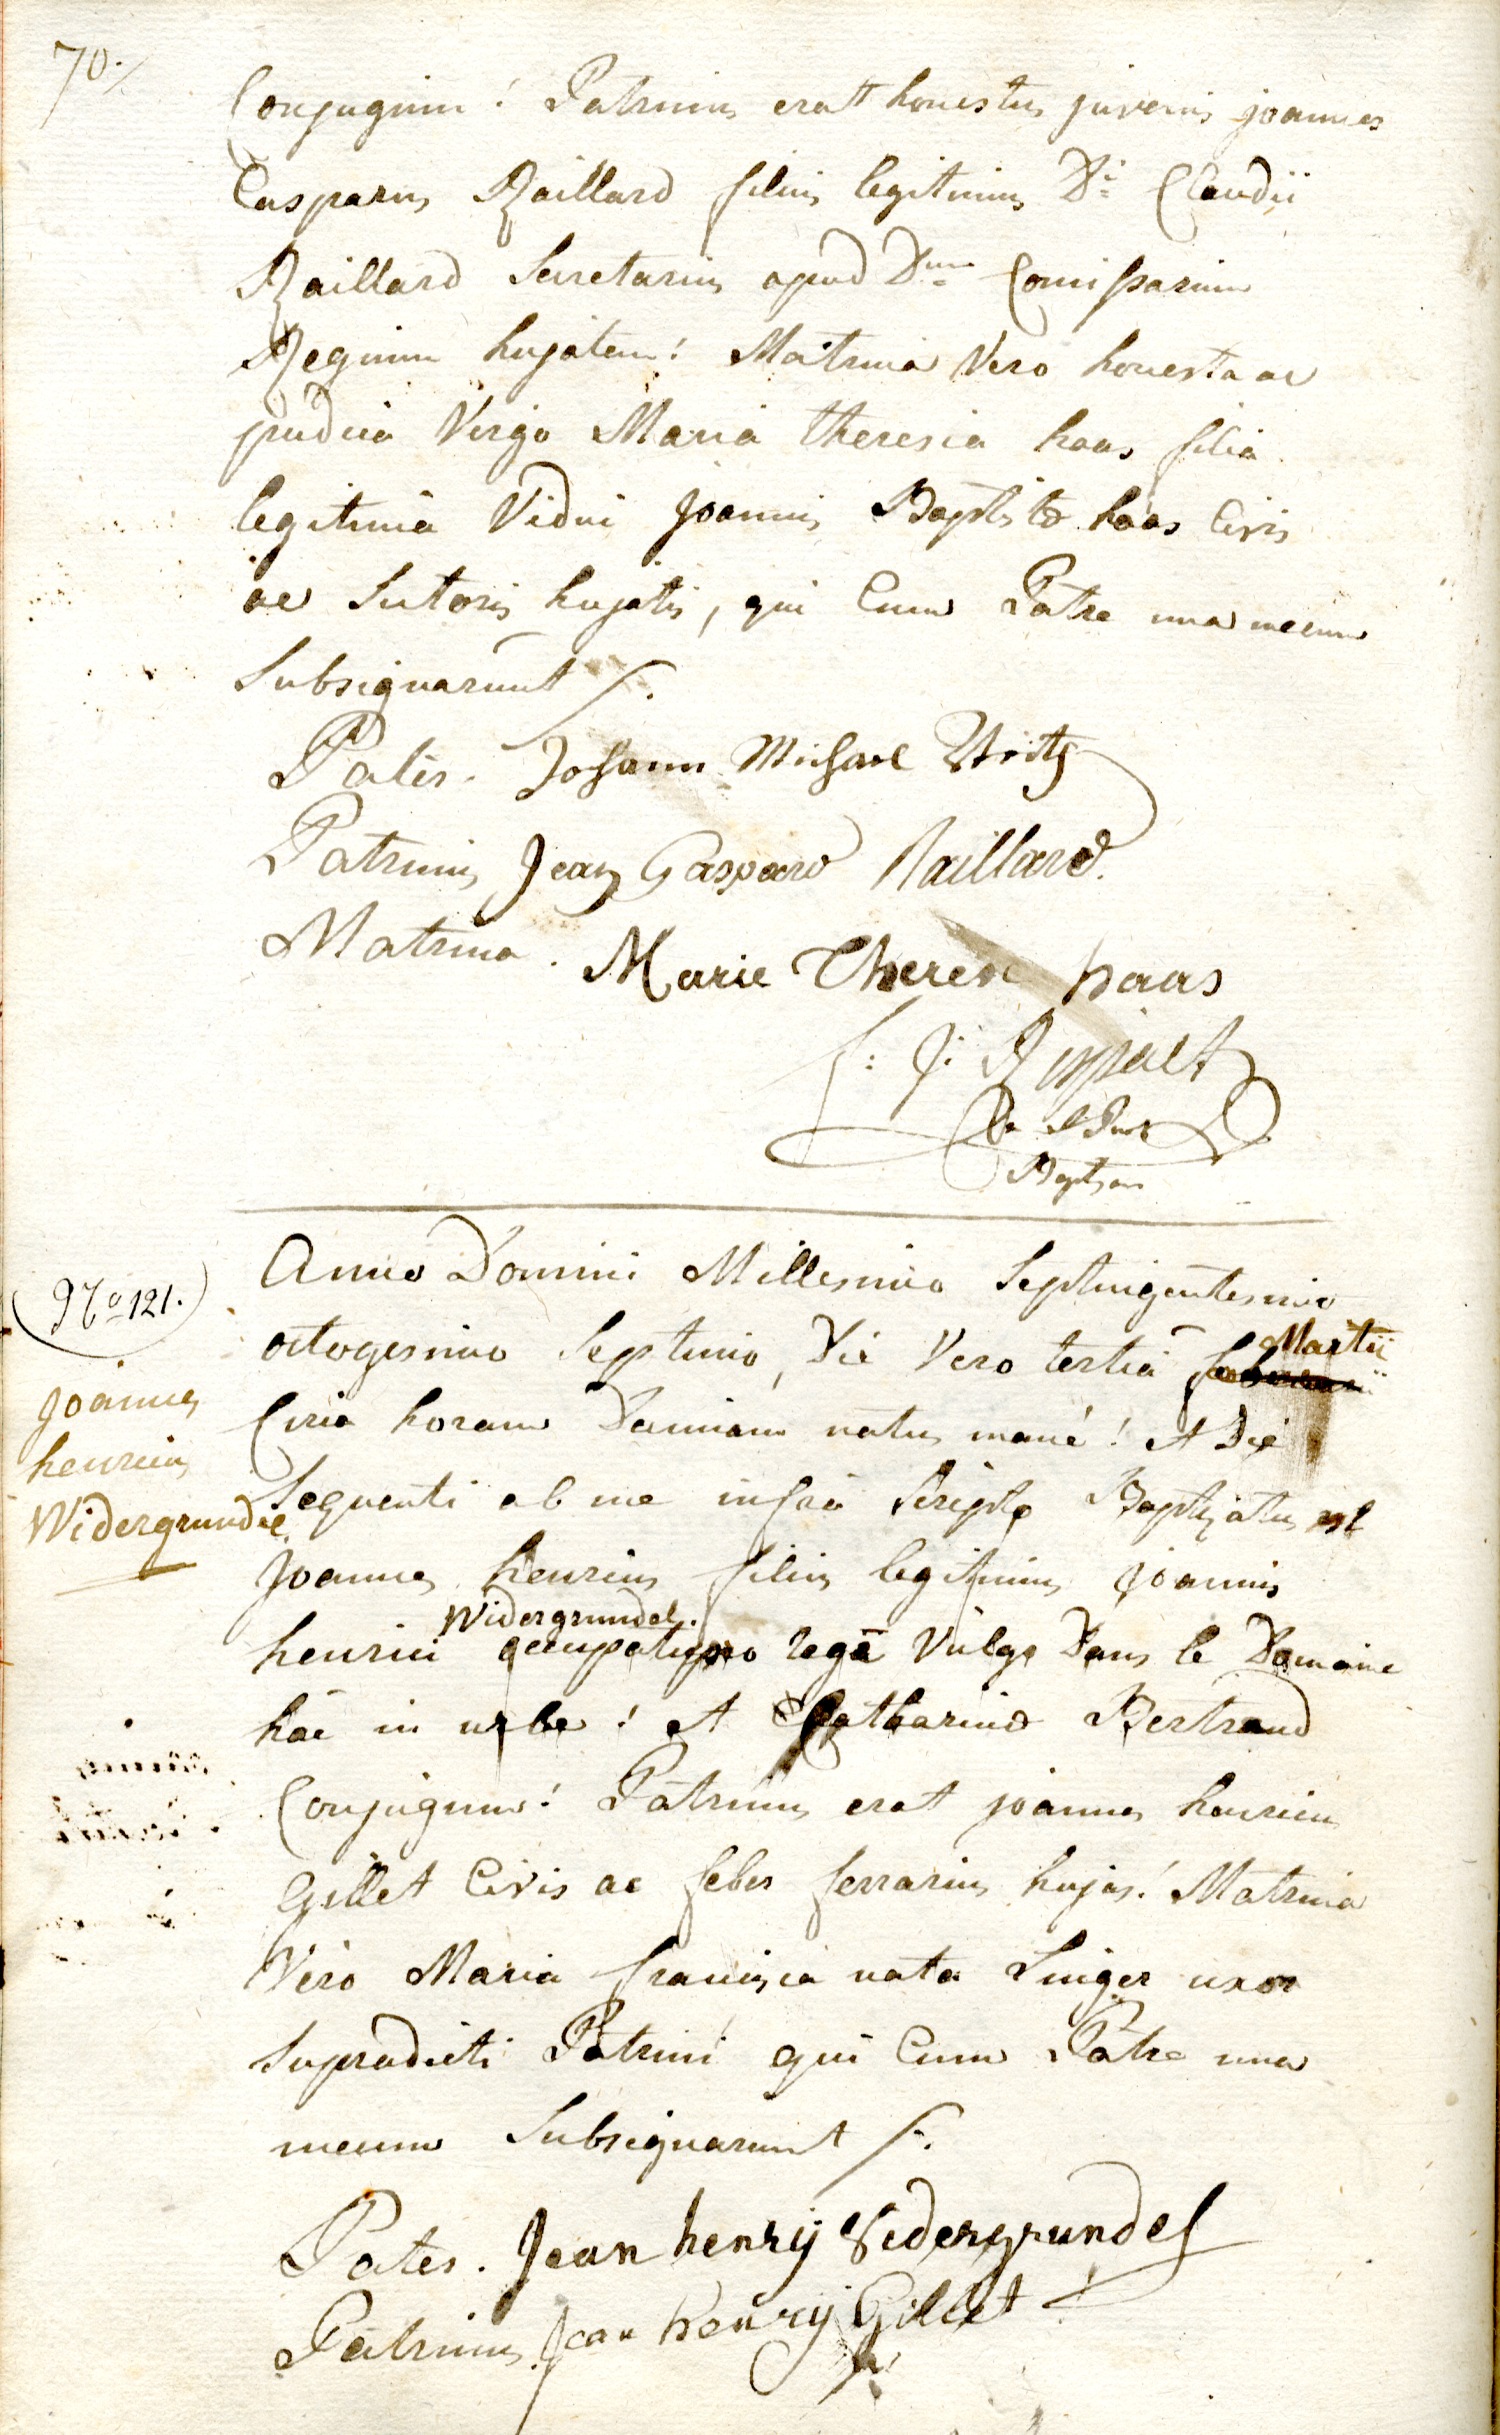 70.
Conjugum! Patrinus eratt honestus juvenis joannes
Casparus Raillard filius legitimus Di Claudii
Raillard Secretarius apud Dum Comissarium
Regium hujatem! Matrina Vero honesta ac
pudica Virgo Maria theresia haas filia
legitima Vidui Joannis Baptistæ haas Civis
ac Sutoris hujatis, qui Cum Patre una mecum
Subsignarunt
Pater. Johann Michael
Patrinus Jean Gaspard Raillard.
Matrina. Marie Therese haas
Anno Domini Millesimo Septuigentesimo
octogesimo Septimo, Die Vero tertia Martii
Circa horam Damiam natus mané! et Die
Sequenti ab me infra Scripto Baptizatus est
Joannes henricus filius legitimus joannis
henrici Widergrundel. occupatus pro rege Vulgo Dans le Domaine
hac in urbe! et Catharinæ Bertrand
Conjugum! Patrinus erat joannes henricus
Gillet Civis ac feber ferrarius hujas! Matrina
Vero Maria francisca nata Singer uxor
Supradicti Patrini qui Cum Patre una
mecum Subsignarunt
Pater. Jean henrÿ Vidergrundel
Patrinus. Jean henrÿ Gillet
No 121.
joannes
henricus
Widergrundel